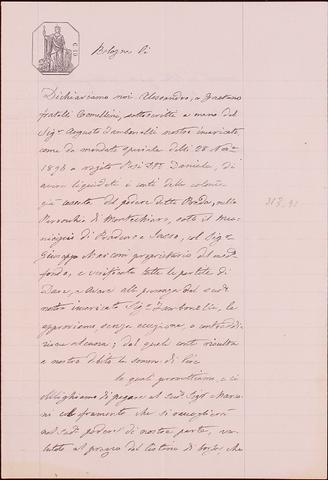 Bologna li
Dichiariamo noi Alessandro, e Gaetano
fratelli Comellini, sottoscritti a mezzo del
Sigr Augusto Zambonelli nostro incaricato
come da mandato speciale delli 28 Nov.
1896 a rogito Dr. Daniele, di
aver liquidati i conti della colonia
già cessata del podere detto nella
Parrocchia di Montechiaro, sotto il Mu-
nicipio di Praduro e Sasso, col Sigr
Giuseppe Marconi proprietario del med
fondo, e verificate tutte le partite di
Dare, e Avere alla presenza del sudo
nostro incaricato Sigr Zambonelli, le
approviamo senza eccezione, o contradi-
zione alcuna; dal quali conti risulta
a nostro debito la somma di lire
la quale promettiamo, e ci
obblighiamo di pagare al sudo Sigr Marco-
ni col frumento che si raccoglierà
nel sudo podere di nostra parte, va-
lutato al prezzo del listino di borsa che
313,91